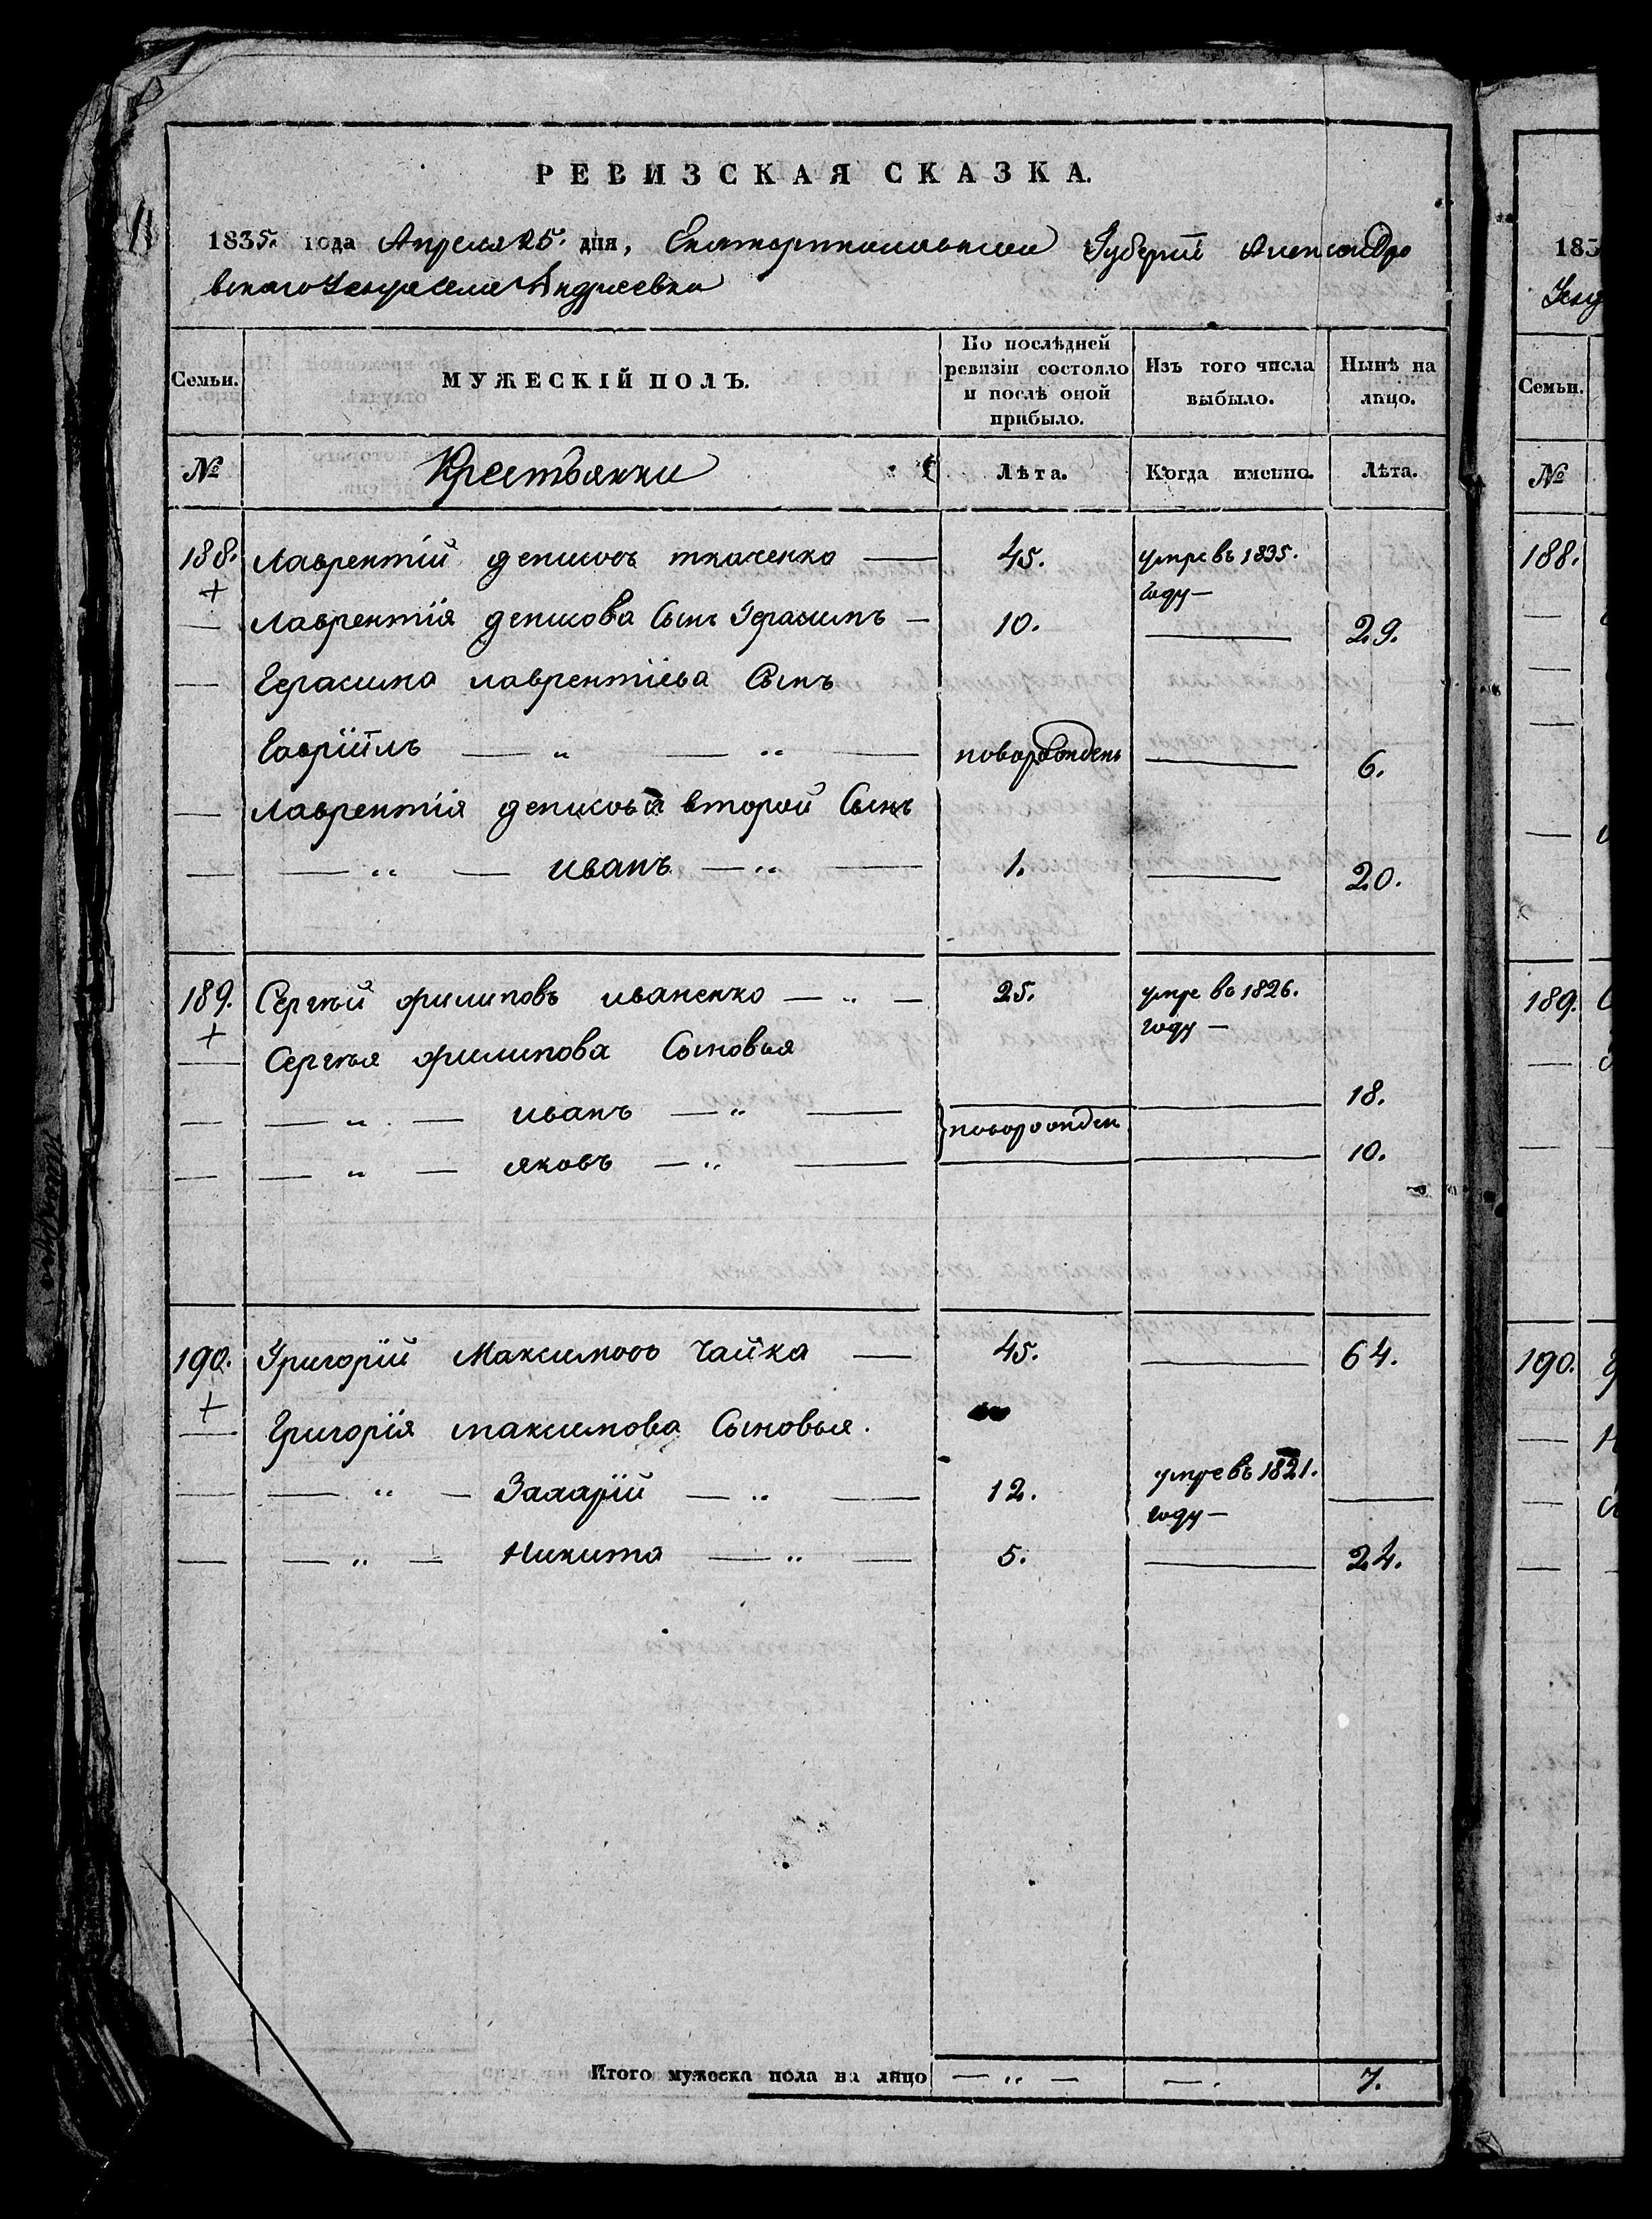 РЕВИЗСКАЯ СКАЗКА.
1835. года Апреля 25. дня, Екатеринославской Губернїи Александро
вскаго Уезда села Андреевки
Семьи.
МУЖЕСКІЙ ПОЛЪ.
По послѣдней ревизіи состояло и послѣ оной прибыло.
Изъ того числа выбыло.
Нынѣ на лицо.
№
Крестьянки
Лѣта.
Когда именно.
Лѣта.
188. Лаврентїй денисовъ ткаченко — 45. умре въ 1835.
+ году —
— Лаврентїя денисова Сынъ Герасимъ — 10. — 29.
— Герасима лаврентїева Сынъ
Гаврїилъ — „ — „ — новорожденъ — 6.
— Лаврентїя денисова второй Сынъ
— — „ — иванъ — „ — 1. — 20.
189. Сергѣй филиповъ иваненко — „ — 25. умре въ 1826.
+ году —
— Сергѣя филипова Сыновья
— — „ — иванъ — „ — — 18.
} новорожден
— — „ — яковъ — „ — — 10.
190. Григорїй Максимовъ Чайка — 45. — 64.
+
— Григорїя максимова Сыновья.
— — „ — Захарїй — „ — 12. умре въ 1821. —
году —
— — „ — Никита — „ — 5. — 24.
Итого мужеска пола на лицо — „ — — . 7.
183
Уезд
Семьи.
№
188.
189.
190.